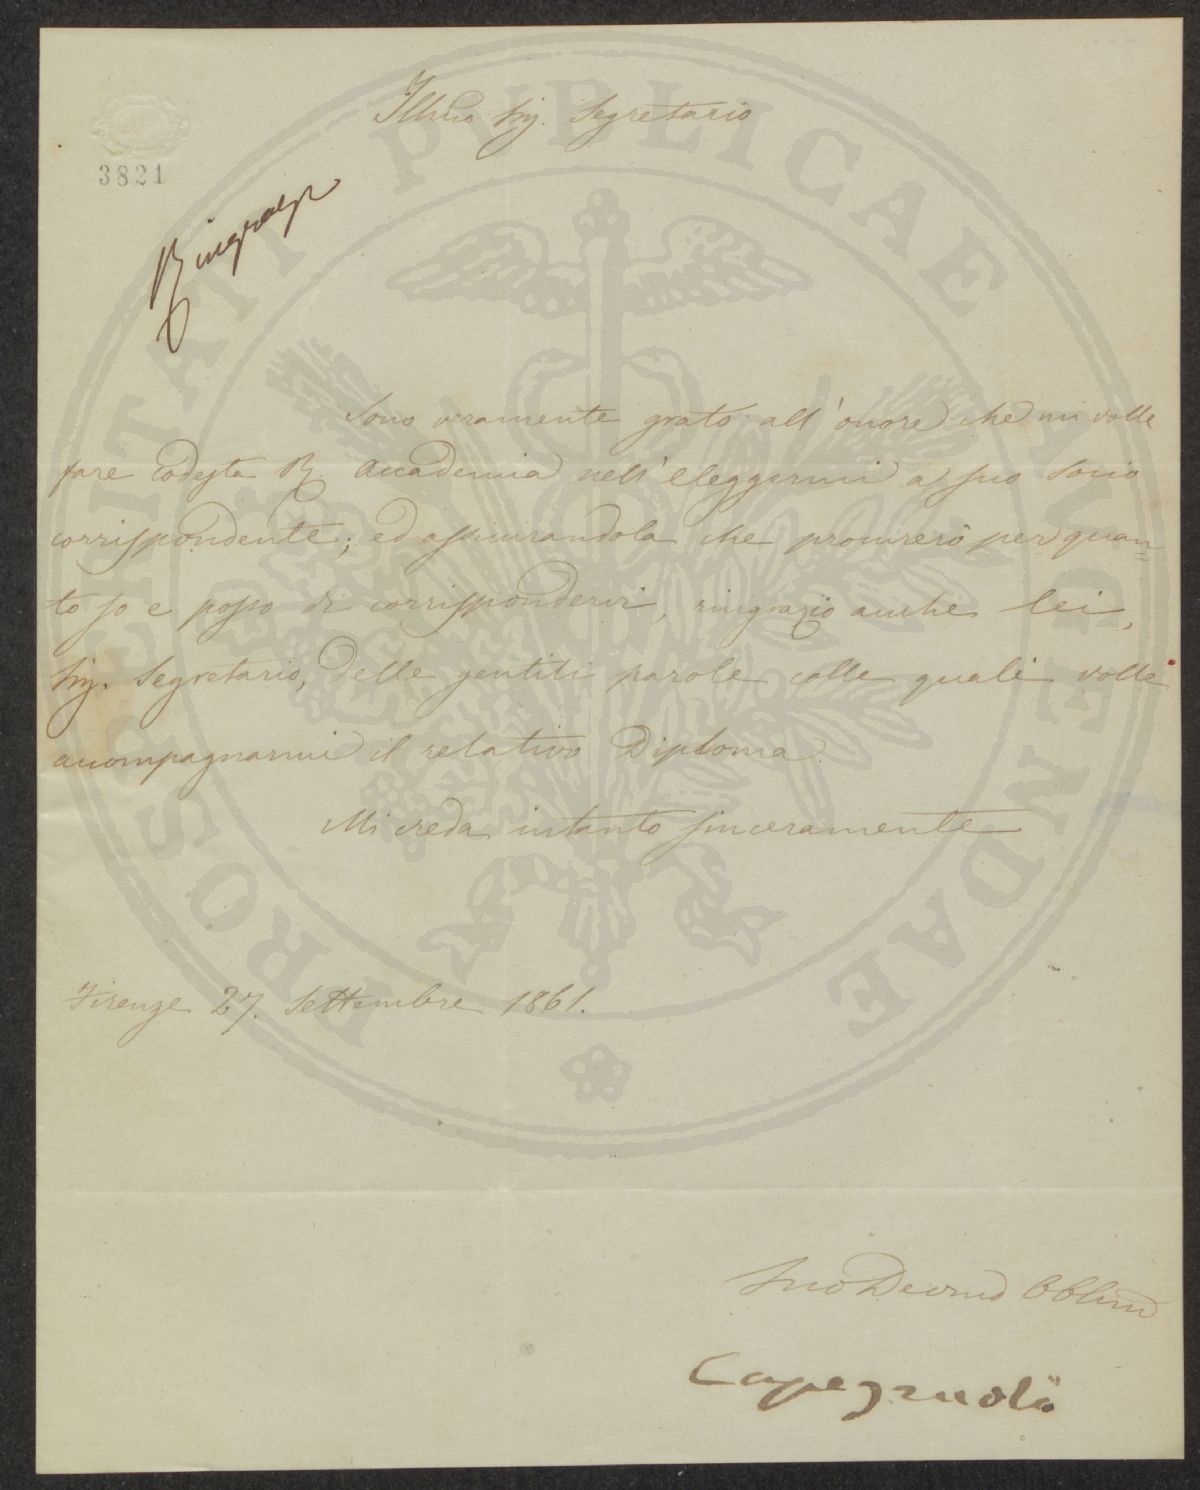 Illmo Sig. Segretario
3821
Ringrazi
Sono veramente grato all'onore che mi volle
fare codesta R. Accademia nell'eleggermi a suo Socio
corrispondente; ed assicurandola che procurerò per quan=
to so e posso di corrispondervi, ringrazio anche lei,
Sig. Segretario, delle gentili parole colle quali volle
accompagnarmi il relativo Diploma.
Mi creda intanto sinceramente
Firenze 27. Settembre 1861.
Suo Devmo Obblmo
PROSPERITATI PVBLICAE AVGENDAE